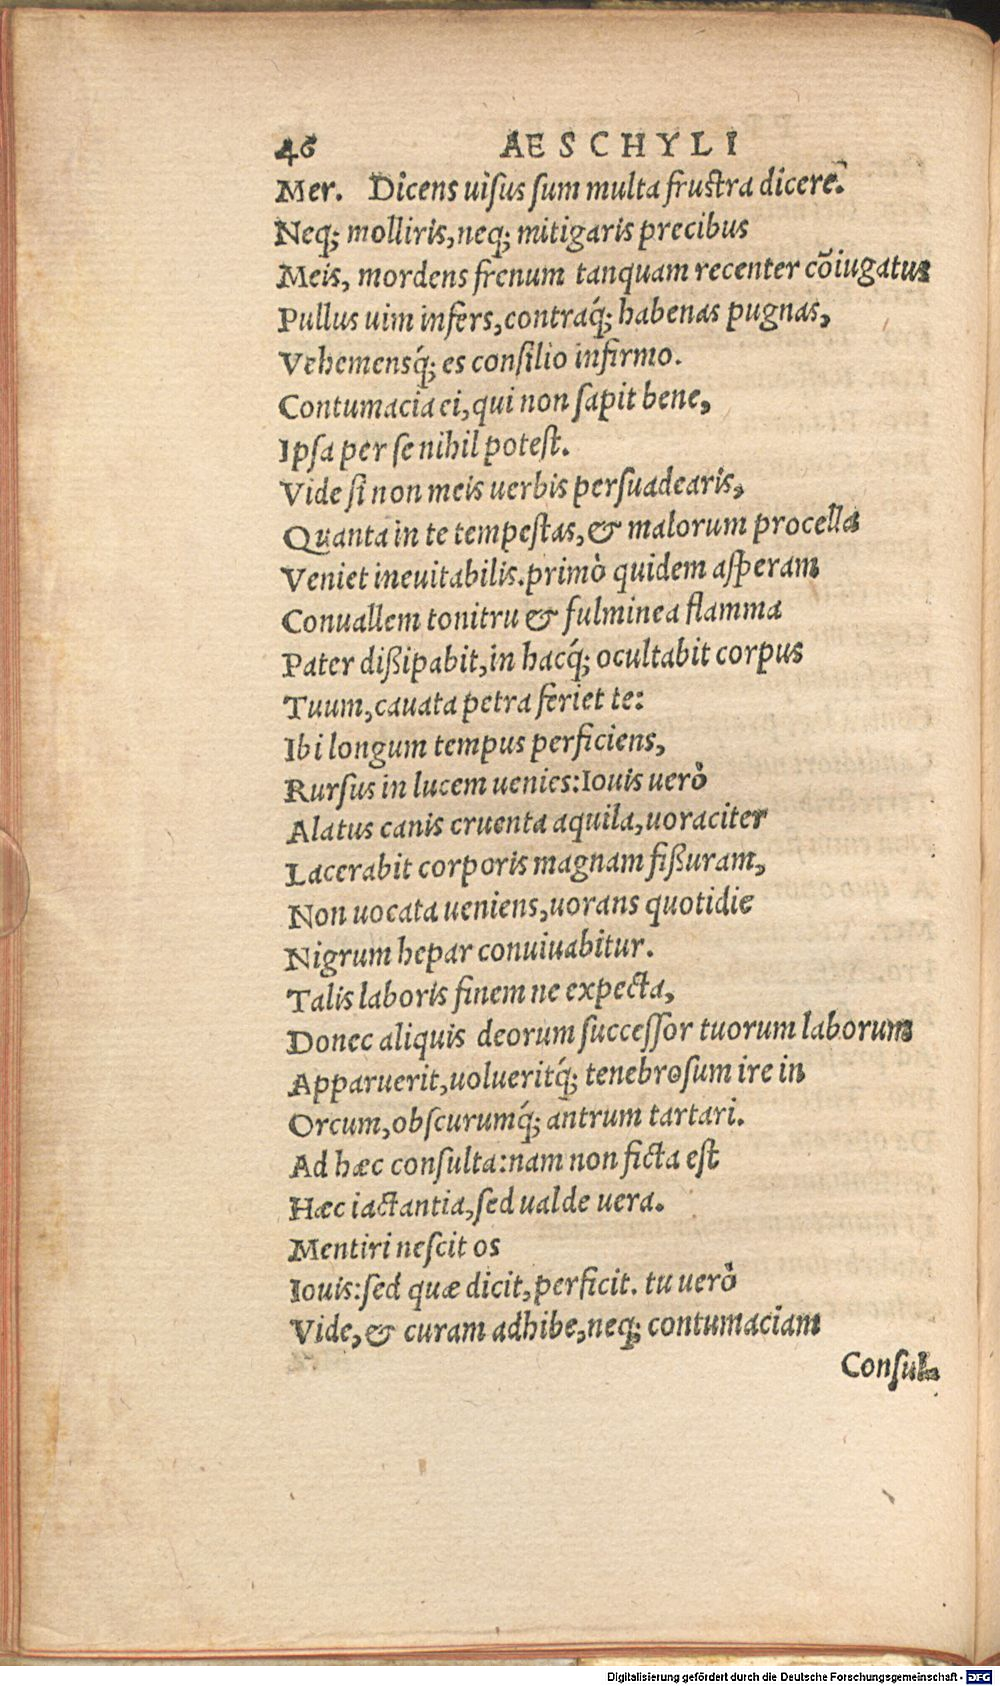 46 AESCHYLI
Mer. Dicens uisus sum multa frustra dicere.
Neq; molliris, neq; mitigaris precibus
Meis, mordens frenum tanquam recenter cõiugatus
Pullus uim infers, contraq́; habenas pugnas,
Vehemensq́; es consilio infirmo.
Contumacia ei, qui non sapit bene,
Ipsa per se nihil potest.
Vide si non meis uerbis persuadearis,
Quanta in te tempestas, & malorum procella
Veniet ineuitabilis. primò quidem asperam
Conuallem tonitru & fulminea flamma
Pater dißipabit, in hacq́; ocultabit corpus
Tuum, cauata petra feriet te:
Ibi longum tempus perficiens,
Rursus in lucem uenies: Iouis uerò
Alatus canis cruenta aquila, uoraciter
Lacerabit corporis magnam fißuram,
Non uocata ueniens, uorans quotidie
Nigrum hepar conuiuabitur.
Talis laboris finem ne expecta,
Donec aliquis deorum successor tuorum laborum
Apparuerit, uolueritq́; tenebrosum ire in
Orcum, obscurumq́; antrum tartari.
Ad hæc consulta: nam non ficta est
Hæc iactantia, sed ualde uera.
Mentiri nescit os
Iouis: sed quæ dicit, perficit. tu uerò
Vide, & curam adhibe, neq; contumaciam
Consul-
Digitalisierung gefördert durch die Deutsche Forschungsgemeinschaft - DFG